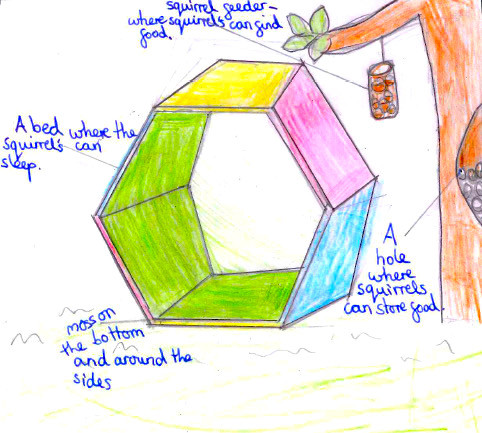 squirrel feeder-
where squirrels can find
food.
A bed where the
squirrels can
sleep.
A
hole
where
squirrels
can store food.
moss on
the bottom
and around the
sides